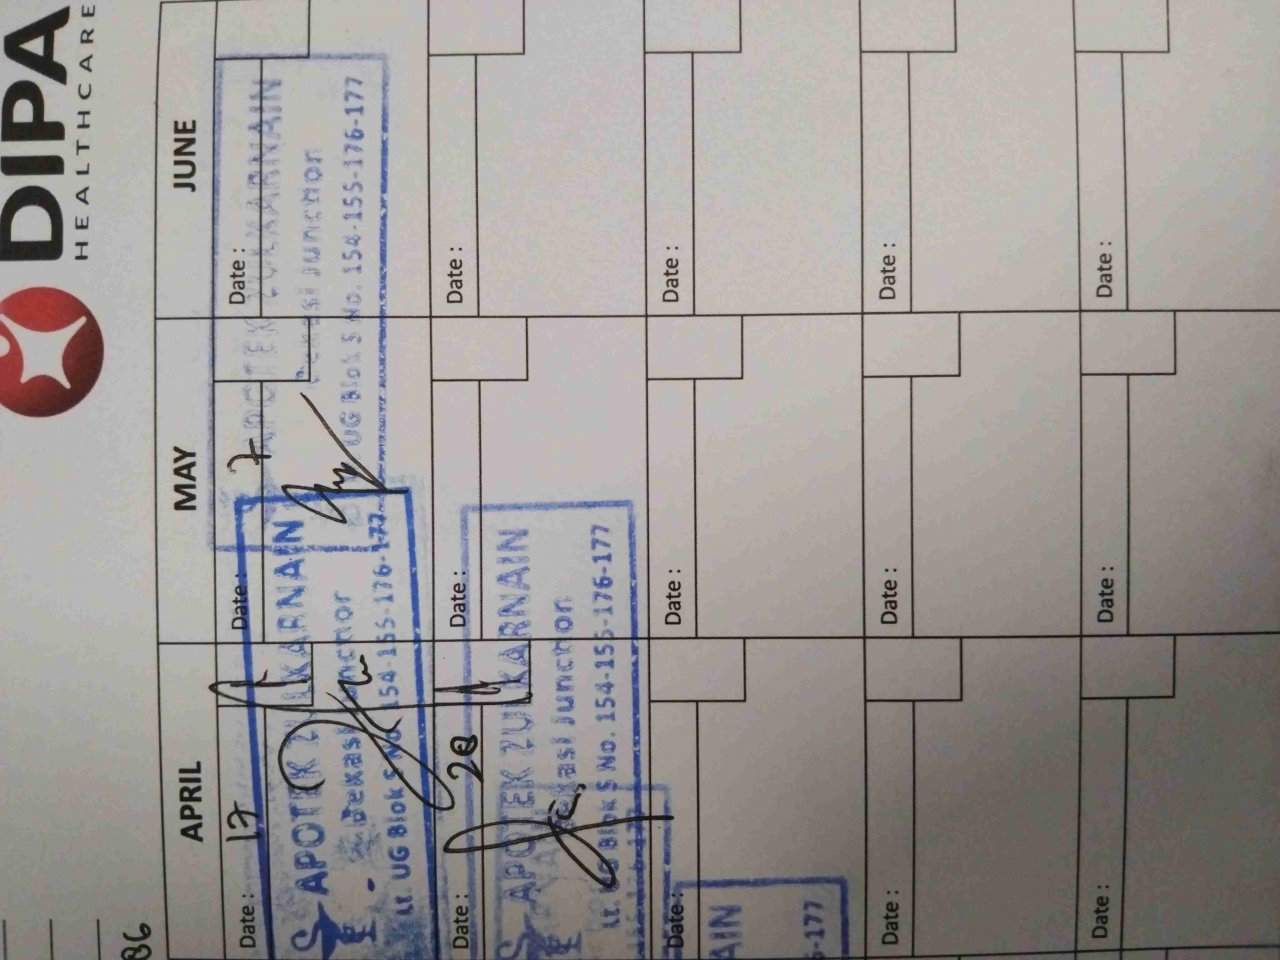 DIPA
HEALTHCARE
86
APRIL MAY JUNE
Date : 17 Date : 7 Date :
APOTEK ZULKARNAIN
Bekasi Junction
Lt. UG Blok S No. 154-155-176-177
APOTEK ZULKARNAIN
Bekasi Junction
UG Blok S No. 154-155-176-177
Date : 28 Date : Date :
APOTEK ZULKARNAIN
Bekasi Junction
Lt. UG Blok S No. 154-155-176-177
Date : Date : Date :
AIN
5-177
Date : Date : Date :
Date : Date : Date :